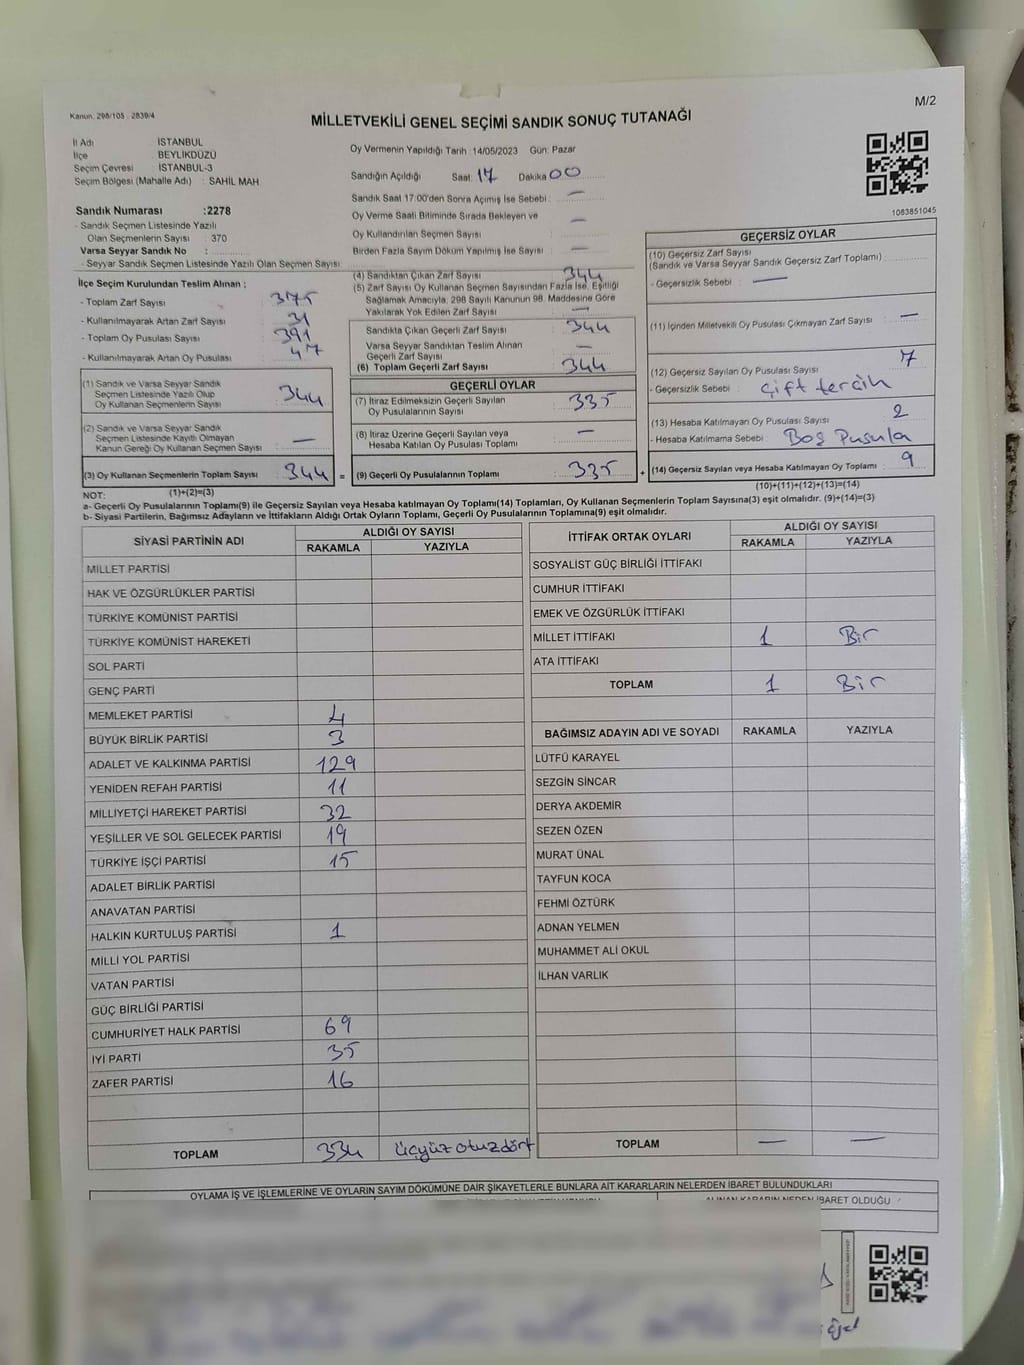 M/2
Kanun. 298/105 - 2839/4
MİLLETVEKİLİ GENEL SEÇİMİ SANDIK SONUÇ TUTANAĞI
İl Adı İSTANBUL
İlçe BEYLİKDÜZÜ
Seçim Çevresi İSTANBUL-3
Seçim Bölgesi (Mahalle Adı) : SAHİL MAH
Oy Vermenin Yapıldığı Tarih :14/05/2023 Gün: Pazar
Sandığın Açıldığı Saat: 17 Dakika 00
Sandık Saati 17:00'den Sonra Açımış İse Sebebi : —
Oy Verme Saati Bitiminde Sırada Bekleyen ve —
Oy Kullandırılan Seçmen Sayısı
Birden Fazla Sayım Döküm Yapılmış İse Sayısı —
Sandık Numarası :2278
- Sandık Seçmen Listesinde Yazılı
Olan Seçmenlerin Sayısı : 370
Varsa Seyyar Sandık No :
- Seyyar Sandık Seçmen Listesinde Yazılı Olan Seçmen Sayısı:
1083851045
İlçe Seçim Kurulundan Teslim Alınan ;
- Toplam Zarf Sayısı 375
- Kullanılmayarak Artan Zarf Sayısı : 31
- Toplam Oy Pusulası Sayısı : 391
- Kullanılmayarak Artan Oy Pusulası : 47
(1) Sandık ve Varsa Seyyar Sandık
Seçmen Listesinde Yazılı Olup 344
Oy Kullanan Seçmenlerin Sayısı
(2) Sandık ve Varsa Seyyar Sandık
Seçmen Listesinde Kayıtlı Olmayan —
Kanun Gereği Oy Kullanan Seçmen Sayısı :
(3) Oy Kullanan Seçmenlerin Toplam Sayısı 344 =
(1)+(2)=(3)
(4) Sandıktan Çıkan Zarf Sayısı 344
(5) Zarf Sayısı Oy Kullanan Seçmen Sayısından Fazla İse, Eşitliği
Sağlamak Amacıyla, 298 Sayılı Kanunun 98. Maddesine Göre
Yakılarak Yok Edilen Zarf Sayısı : —
Sandıkta Çıkan Geçerli Zarf Sayısı 344
Varsa Seyyar Sandıktan Teslim Alınan —
Geçerli Zarf Sayısı
(6) Toplam Geçerli Zarf Sayısı 344
GEÇERLİ OYLAR
(7) İtiraz Edilmeksizin Geçerli Sayılan 335
Oy Pusulalarının Sayısı
(8) İtiraz Üzerine Geçerli Sayılan veya —
Hesaba Katılan Oy Pusulası Toplamı
(9) Geçerli Oy Pusulalarının Toplamı : 335 +
GEÇERSİZ OYLAR
(10) Geçersiz Zarf Sayısı
(Sandık ve Varsa Seyyar Sandık Geçersiz Zarf Toplamı)
- Geçersizlik Sebebi : —
(11) İçinden Milletvekili Oy Pusulası Çıkmayan Zarf Sayısı : —
(12) Geçersiz Sayılan Oy Pusulası Sayısı : 7
- Geçersizlik Sebebi : Çift tercih
(13) Hesaba Katılmayan Oy Pusulası Sayısı 2
- Hesaba Katılmama Sebebi : Boş Pusula
(14) Geçersiz Sayılan veya Hesaba Katılmayan Oy Toplamı : 9
(10)+(11)+(12)+(13)=(14)
NOT:
a- Geçerli Oy Pusulalarının Toplamı(9) ile Geçersiz Sayılan veya Hesaba katılmayan Oy Toplamı(14) Toplamları, Oy Kullanan Seçmenlerin Toplam Sayısına(3) eşit olmalıdır. (9)+(14)=(3)
b- Siyasi Partilerin, Bağımsız Adayların ve İttifakların Aldığı Ortak Oyların Toplamı, Geçerli Oy Pusulalarının Toplamına(9) eşit olmalıdır.
SİYASİ PARTİNİN ADI ALDIĞI OY SAYISI
RAKAMLA YAZIYLA
MİLLET PARTİSİ
HAK VE ÖZGÜRLÜKLER PARTİSİ
TÜRKİYE KOMÜNİST PARTİSİ
TÜRKİYE KOMÜNİST HAREKETİ
SOL PARTİ
GENÇ PARTİ
MEMLEKET PARTİSİ 4
BÜYÜK BİRLİK PARTİSİ 3
ADALET VE KALKINMA PARTİSİ 129
YENİDEN REFAH PARTİSİ 11
MİLLİYETÇİ HAREKET PARTİSİ 32
YEŞİLLER VE SOL GELECEK PARTİSİ 19
TÜRKİYE İŞÇİ PARTİSİ 15
ADALET BİRLİK PARTİSİ
ANAVATAN PARTİSİ
HALKIN KURTULUŞ PARTİSİ 1
MİLLİ YOL PARTİSİ
VATAN PARTİSİ
GÜÇ BİRLİĞİ PARTİSİ
CUMHURİYET HALK PARTİSİ 69
İYİ PARTİ 35
ZAFER PARTİSİ 16
TOPLAM 334 üçyüz otuzdört
İTTİFAK ORTAK OYLARI ALDIĞI OY SAYISI
RAKAMLA YAZIYLA
SOSYALİST GÜÇ BİRLİĞİ İTTİFAKI
CUMHUR İTTİFAKI
EMEK VE ÖZGÜRLÜK İTTİFAKI
MİLLET İTTİFAKI 1 Bir
ATA İTTİFAKI
TOPLAM 1 Bir
BAĞIMSIZ ADAYIN ADI VE SOYADI RAKAMLA YAZIYLA
LÜTFÜ KARAYEL
SEZGİN SİNCAR
DERYA AKDEMİR
SEZEN ÖZEN
MURAT ÜNAL
TAYFUN KOCA
FEHMİ ÖZTÜRK
ADNAN YELMEN
MUHAMMET ALİ OKUL
İLHAN VARLIK
TOPLAM — —
OYLAMA İŞ VE İŞLEMLERİNE VE OYLARIN SAYIM DÖKÜMÜNE DAİR ŞİKAYETLERLE BUNLARA AİT KARARLARIN NELERDEN İBARET BULUNDUKLARI
ALINAN KARARIN NEDEN İBARET OLDUĞU